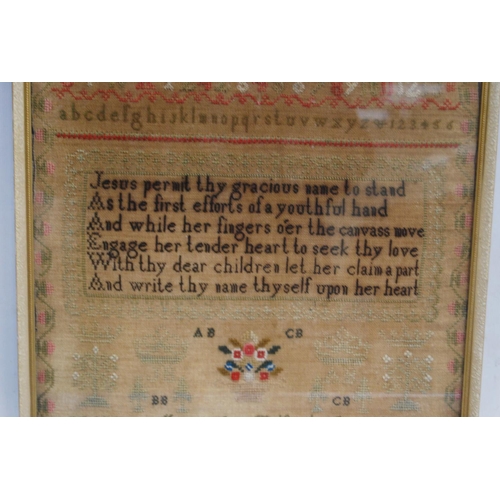 abcdefghijklmnopqrstuvwxyz&123456
Jesus permit thy gracious name to stand
As the first efforts of a youthful hand
And while her fingers o'er the canvass move
Engage her tender heart to seek thy love
With thy dear children let her claim a part
And write thy name thyself upon her heart
AB CB
BB CB